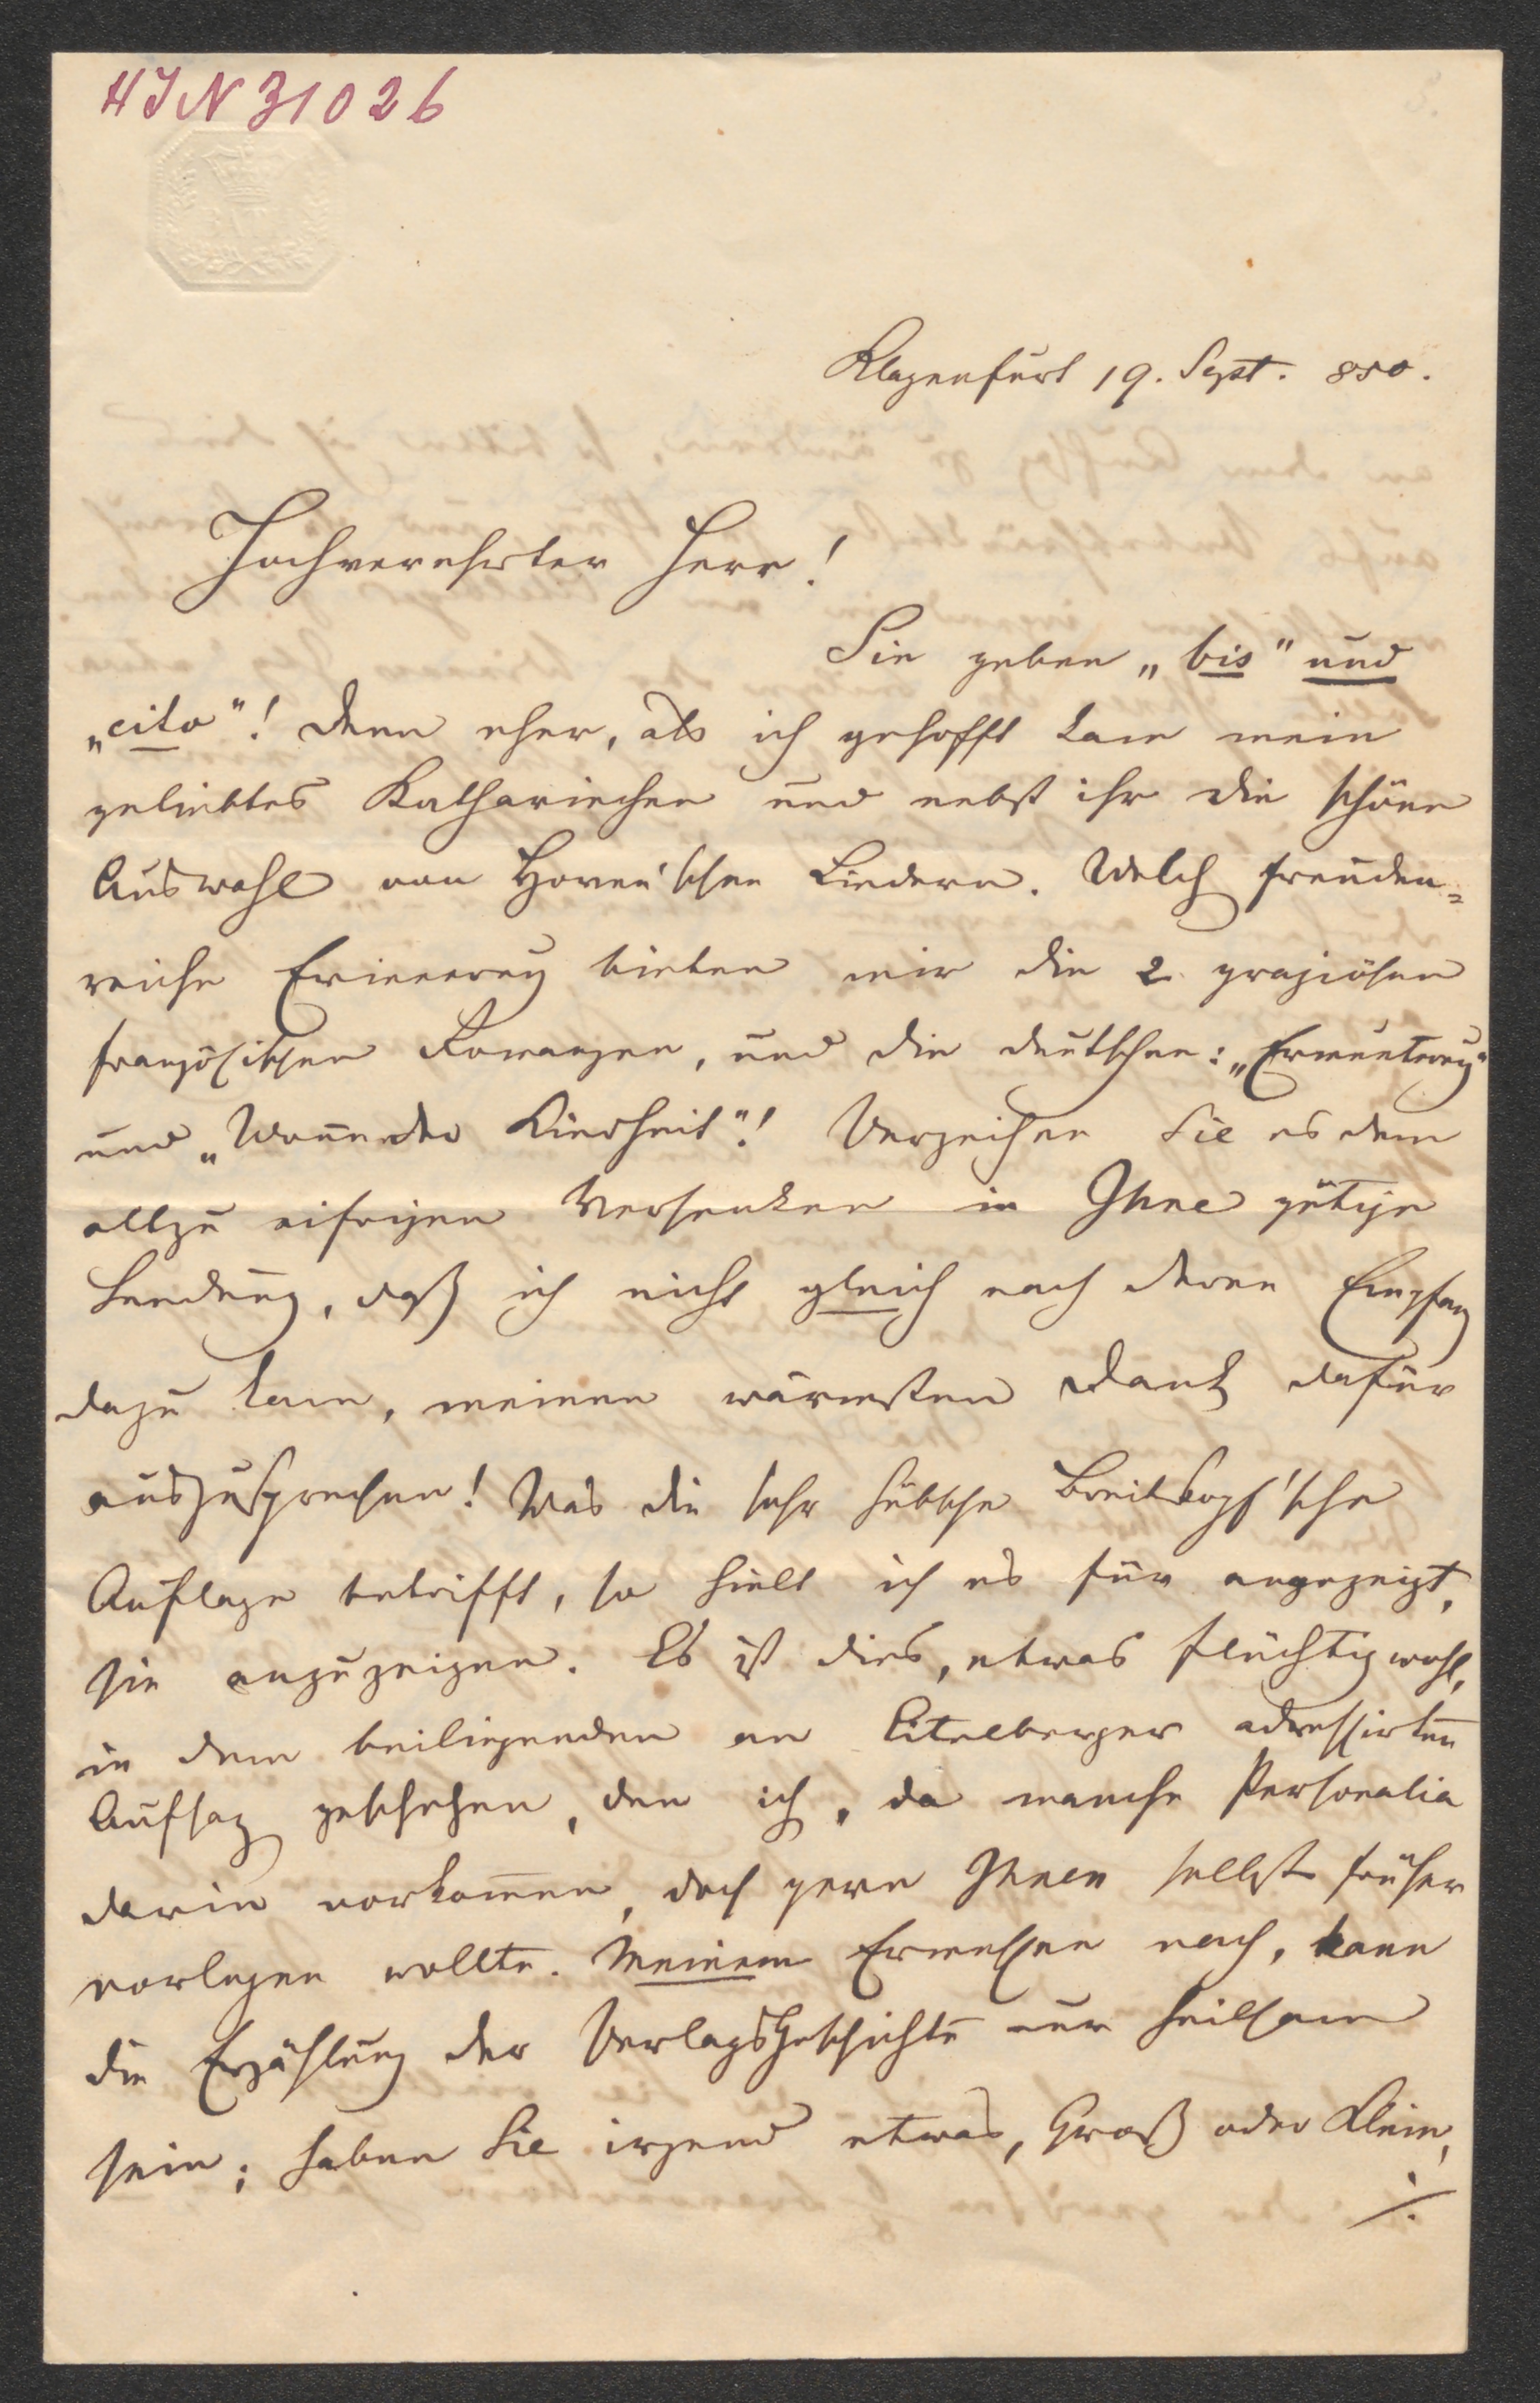 HIN 31026
Klagenfurt 19. Sept. 850.
Hochverehrter Herr!
Sie geben „bis" und
„cito"! denn eher, als ich gehofft kam mein
geliebtes Katharinchen und nebst ihr die schöne
Auswahl von Hoven'schen Liedern. Welch freuden=
reiche Erinnerung bieten mir die 2 graziösen
französischen Romanzen, und die deutschen: „Ermunterung"
und „Wonne der Kindheit"! Verzeihen Sie es dem
allzu eifrigen Versenken in Ihre gütige
Sendung, daß ich nicht gleich nach deren Empfang
dazu kam, meinen wärmsten Dank dafür
auszusprechen! Was die sehr hübsche Breitkopf'sche
Auflage betrifft, so hielt ich es für angezeigt,
sie anzuzeigen. Es ist dies, etwas flüchtig wohl,
in dem beiliegenden an Eitelberger adressirten
Aufsaz geschehen, den ich, da manche Personalia
darin vorkomen, doch gern Ihnen selbst früher
vorlegen wollte. Meinem Ermessen nach, kann
die Erzählung der Verlagsgeschichte nur heilsam
sein; haben Sie irgend etwas, Groß oder Klein,
./.